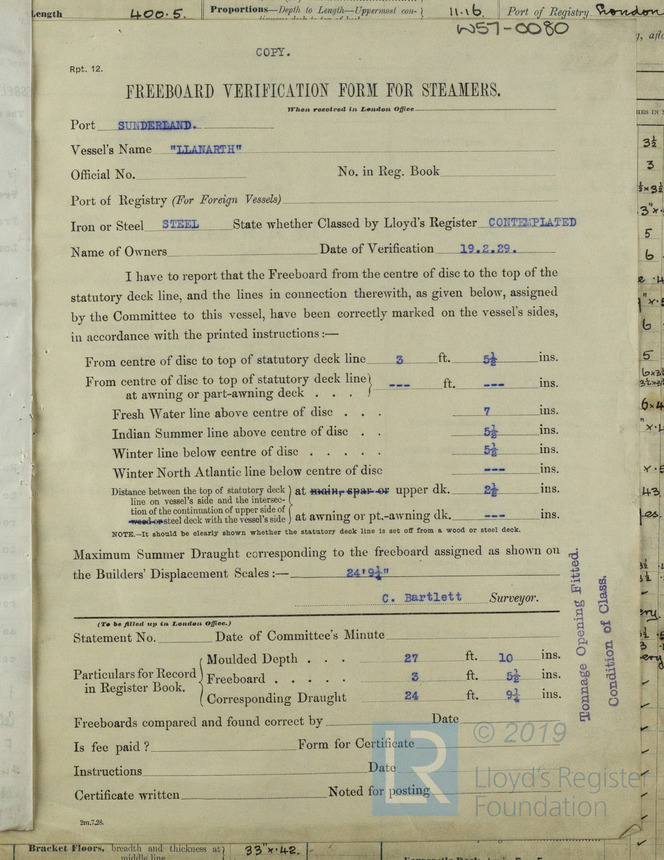 Length 400.5. Proportions—Depth to Length—Uppermost con- 11.16. Port of Registry London
W57-0080
COPY.
Rpt. 12.
FREEBOARD VERIFICATION FORM FOR STEAMERS.
When received in London Office
Port SUNDERLAND.
Vessel's Name "LLANARTH"
Official No. No. in Reg. Book
Port of Registry (For Foreign Vessels)
Iron or Steel STEEL State whether Classed by Lloyd's Register CONTEMPLATED
Name of Owners Date of Verification 19.2.29.
I have to report that the Freeboard from the centre of disc to the top of the
statutory deck line, and the lines in connection therewith, as given below, assigned
by the Committee to this vessel, have been correctly marked on the vessel's sides,
in accordance with the printed instructions:—
From centre of disc to top of statutory deck line 3 ft. 5½ ins.
From centre of disc to top of statutory deck line
at awning or part-awning deck . . . --- ft. --- ins.
Fresh Water line above centre of disc . . . 7 ins.
Indian Summer line above centre of disc . . 5½ ins.
Winter line below centre of disc . . . . . 5½ ins.
Winter North Atlantic line below centre of disc --- ins.
Distance between the top of statutory deck
line on vessel's side and the intersec- at main, spar or upper dk. 2½ ins.
tion of the continuation of upper side of
wood or steel deck with the vessel's side at awning or pt.-awning dk. --- ins.
NOTE.—It should be clearly shown whether the statutory deck line is set off from a wood or steel deck.
Maximum Summer Draught corresponding to the freeboard assigned as shown on
the Builders' Displacement Scales:— 24'9¼"
C. Bartlett Surveyor.
Tonnage Opening Fitted.
Condition of Class.
(To be filled up in London Office.)
Statement No. Date of Committee's Minute
Particulars for Record
in Register Book.
Moulded Depth . . . 27 ft. 10 ins.
Freeboard . . . . . 3 ft. 5½ ins.
Corresponding Draught 24 ft. 9¼ ins.
Freeboards compared and found correct by Date
Is fee paid? Form for Certificate
Instructions Date
Certificate written Noted for posting
© 2019
LR
Lloyd's Register
Foundation
2m.7.28.
Bracket Floors, breadth and thickness at 33"x.42.
middle line